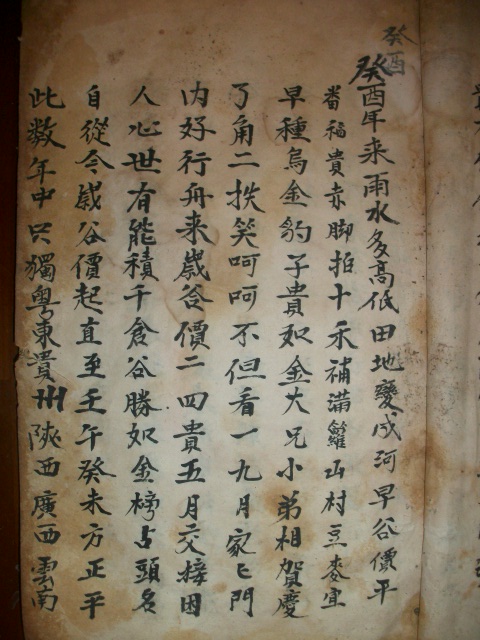 癸酉
癸酉年来雨水多高低田地變成河早谷價平
番福貴赤脚拍十禾補滿籮山村豆麥宜
早種烏金豹子貴如金大兄小弟相賀慶
了角二扶笑呵呵不但看一九月家匕門
内好行舟来歲谷價二四貴五月交接因
人心世有能積千倉谷勝如金榜占頭名
自從今歲谷價起直至壬午癸未方正平
此数年中只獨粤東貴州陝西廣西雲南